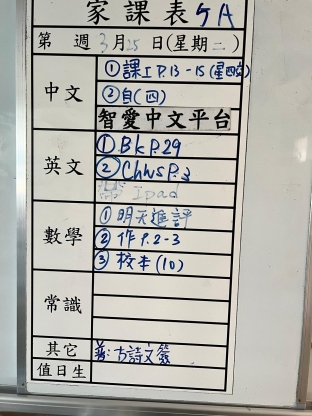 家課表 5A
第 週 3月25日(星期二)
中文
①課工P.13-15(星四交)
②自(四)
智愛中文平台
英文
①BkP.29
②ChwsP.3
Ipad
數學
①明天進評
②作P.2-3
③校本(10)
常識
其它
普:古詩文簽
值日生